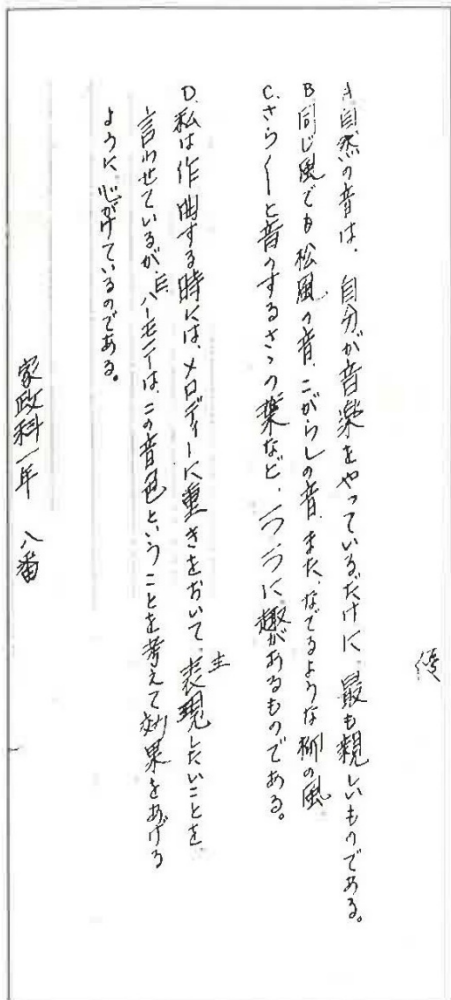 優
A 自然の音は、自分が音楽をやっているだけに、最も親しいものである。
B 同じ風でも松風の音、こがらしの音、また、なでるような柳の風
C. さら〱と音のするさゝの葉など、一つ一つに趣があるものである。
主
D. 私は作曲する時には、メロディーに重きをおいて、表現したいことを
言わせているが、E. ハーモニイは、この音色ということを考えて効果をあげる
ように心がけているのである。
家政科一年 八番